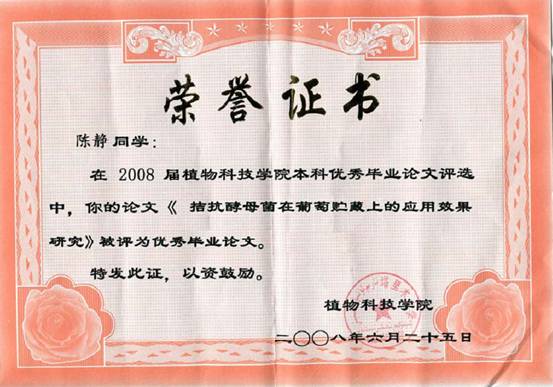 荣誉证书
陈静同学：
在 2008 届植物科技学院本科优秀毕业论文评选
中，你的论文《 拮抗酵母菌在葡萄贮藏上的应用效果
研究》被评为优秀毕业论文。
特发此证，以资鼓励。
植物科技学院
二〇〇八年六月二十五日